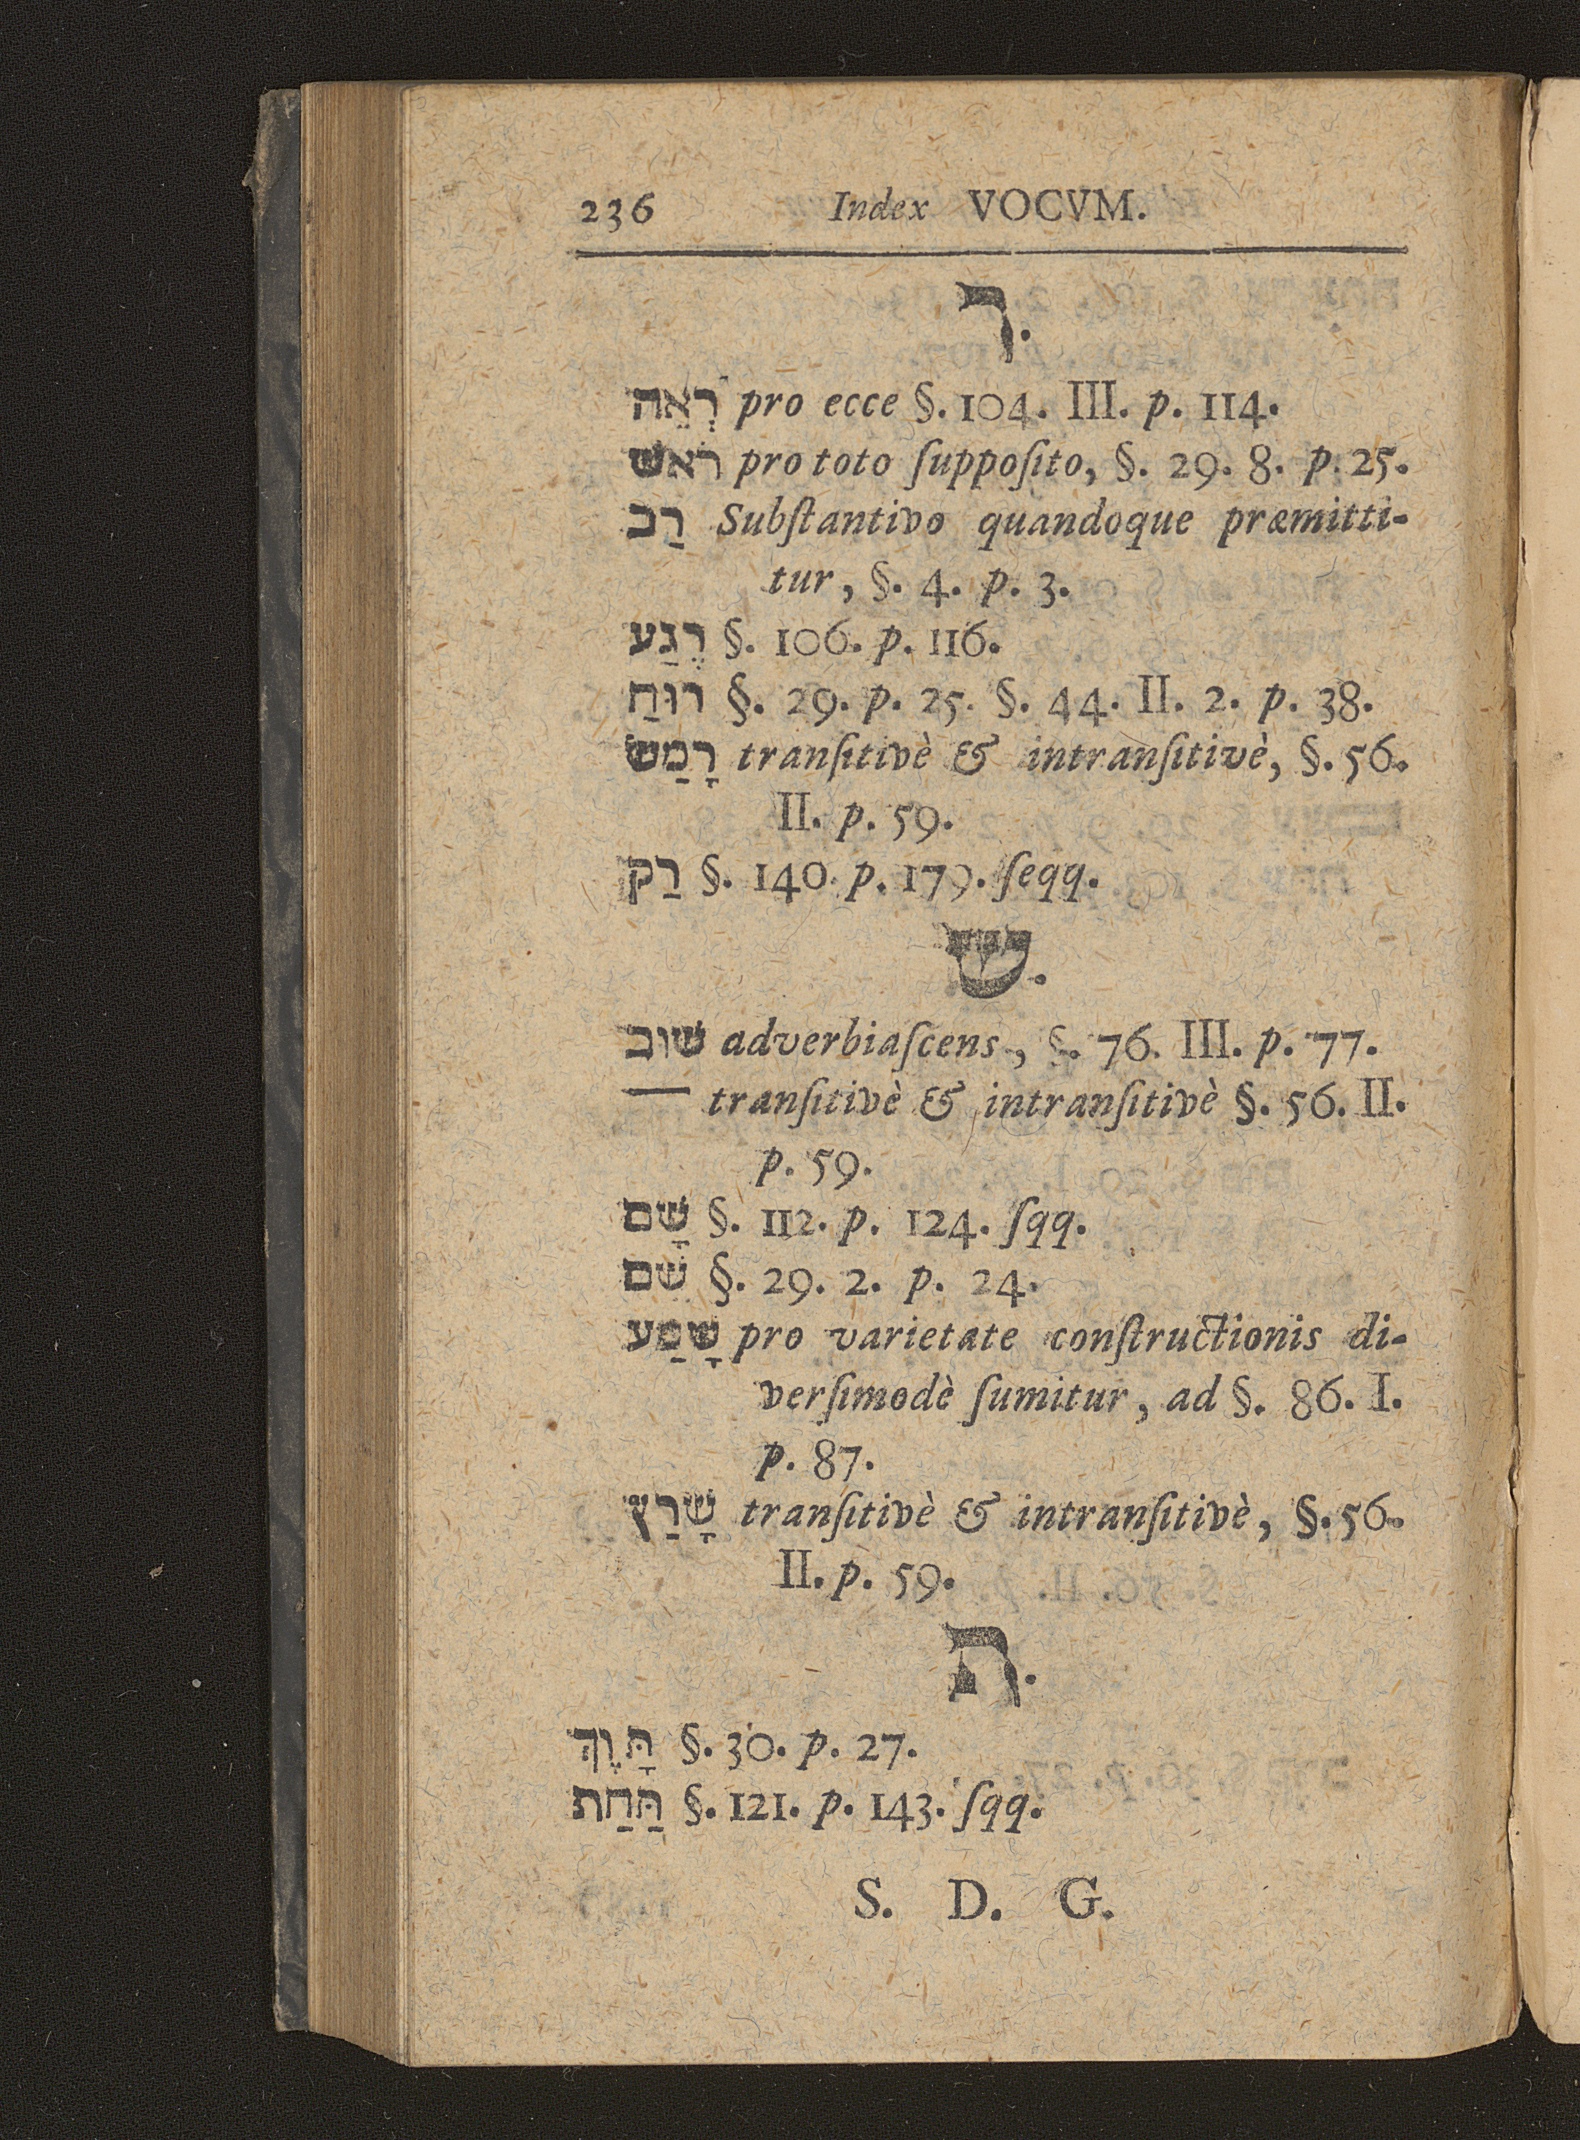 236 Index VOCVM.
ר.
רְאֵה pro ecce §. 104. III. p. 114.
ראֹשׁ pro toto ſuppoſito, §. 29. 8. p. 25.
רַב Subſtantivo quandoque præmitti-
tur, §. 4. p. 3.
רֶגַע §. 106. p. 116.
רוּחַ §. 29. p. 25. §. 44. II. 2. p. 38.
רָמַשׂ tranſitivè & intranſitivè, §. 56.
II. p. 59.
רַק §. 140. p. 179. ſeqq.
ש.
שׁוּב adverbiaſcens, §. 76. III. p. 77.
— tranſitivè & intranſitivè §. 56. II.
p. 59.
שָׁם §. 112. p. 124. ſqq.
שׁם §. 29. 2. p. 24.
שָׁמַע pro varietate conſtructionis di-
verſimodè ſumitur, ad §. 86. I.
p. 87.
שָׁרַץ tranſitivè & intranſitivè, §. 56.
II. p. 59.
ת.
תָּוֶךְ §. 30. p. 27.
תַּחַת §. 121. p. 143. ſqq.
S. D. G.